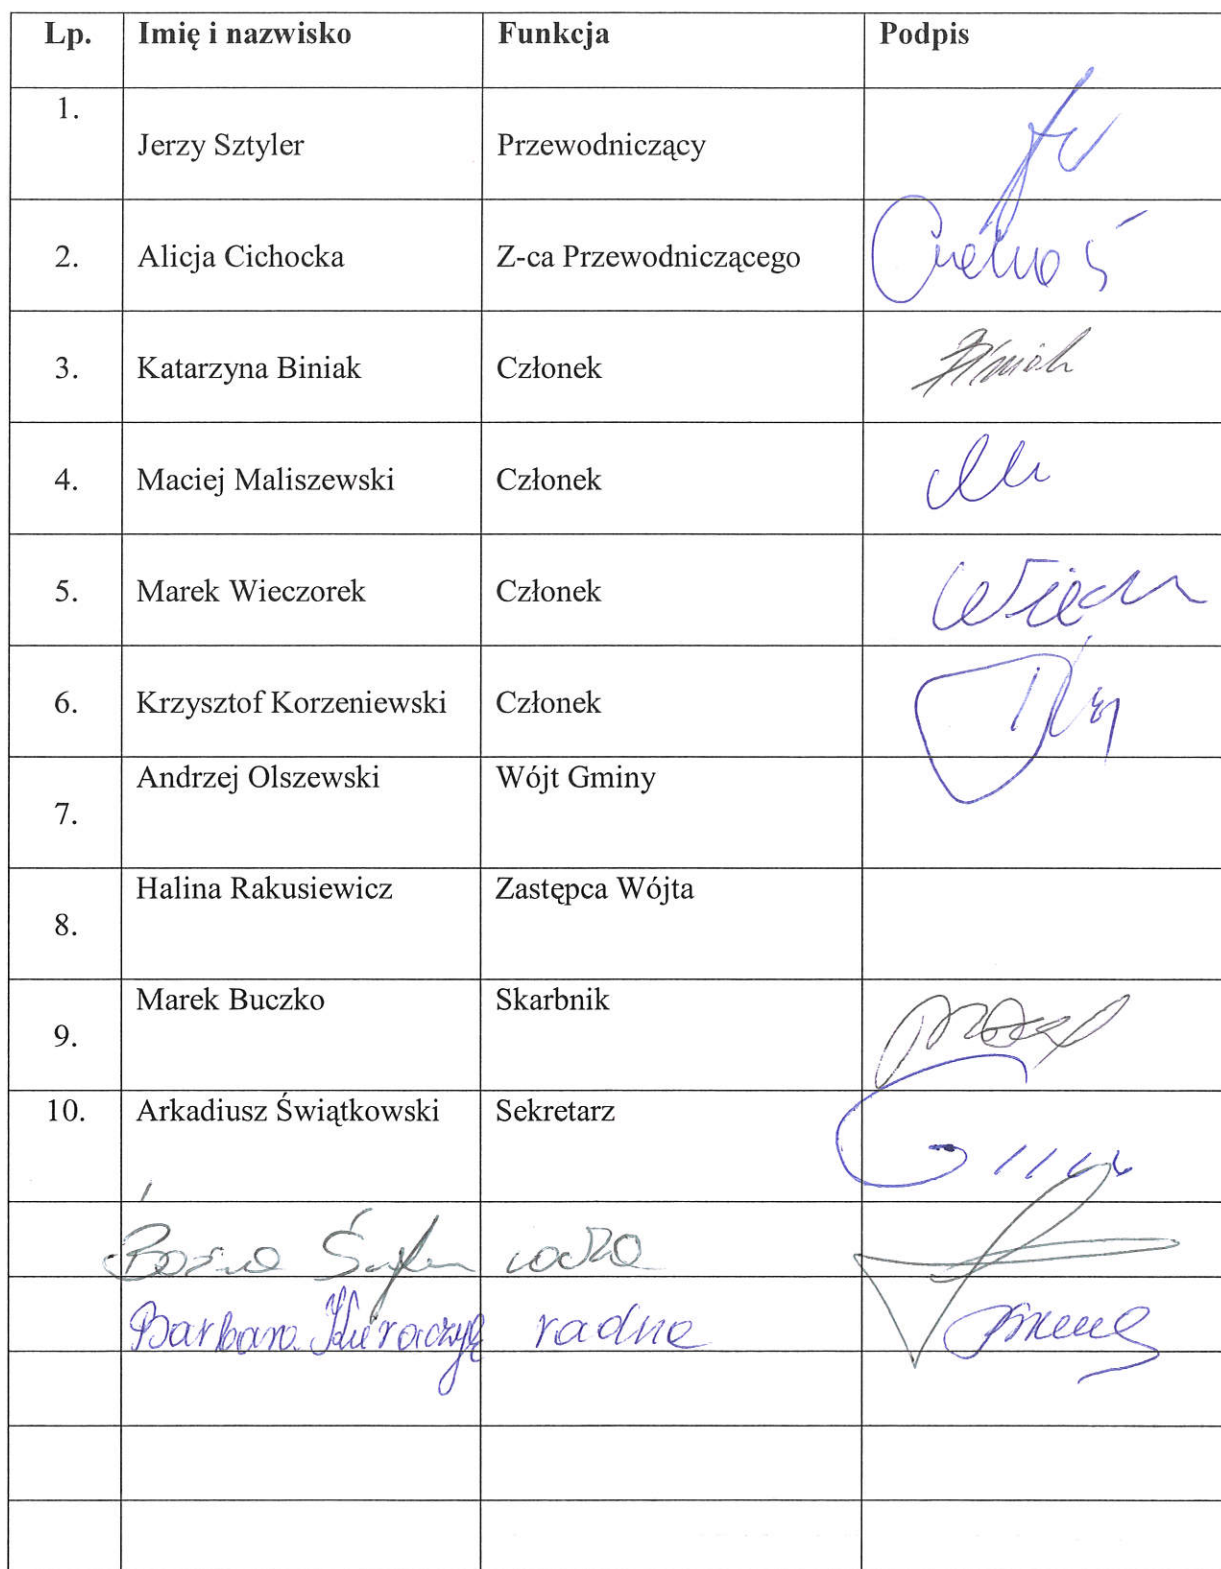 Lp. Imię i nazwisko Funkcja Podpis
1. Jerzy Sztyler Przewodniczący
2. Alicja Cichocka Z-ca Przewodniczącego
3. Katarzyna Biniak Członek
4. Maciej Maliszewski Członek
5. Marek Wieczorek Członek
6. Krzysztof Korzeniewski Członek
7. Andrzej Olszewski Wójt Gminy
8. Halina Rakusiewicz Zastępca Wójta
9. Marek Buczko Skarbnik
10. Arkadiusz Świątkowski Sekretarz
Barbara radna